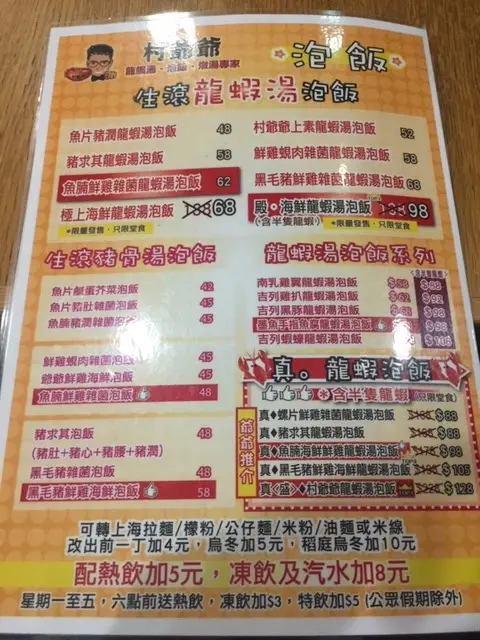 村爺爺
龍蝦湯·泡飯·燉湯專家
泡飯
生滾龍蝦湯泡飯
魚片豬潤龍蝦湯泡飯 48
豬求其龍蝦湯泡飯 58
魚腩鮮雞雜菌龍蝦湯泡飯 62
極上海鮮龍蝦湯泡飯 68
*限量發售·只限堂食
村爺爺上素龍蝦湯泡飯 52
鮮雞蜆肉雜菌龍蝦湯泡飯 58
黑毛豬鮮雞雜菌龍蝦湯泡飯 68
殿·海鮮龍蝦湯泡飯 98
(含半隻龍蝦) *限量發售·只限堂食
生滾豬骨湯泡飯
魚片鹹蛋芥菜泡飯 42
魚片豬肚雜菌泡飯 45
魚腩豬潤雜菌泡飯 45
鮮雞蜆肉雜菌泡飯 45
爺爺鮮雞海鮮泡飯 45
魚腩鮮雞雜菌泡飯 48
豬求其泡飯 48
(豬肚+豬心+豬腰+豬潤)
黑毛豬雜菌泡飯 48
黑毛豬鮮雞海鮮泡飯 58
龍蝦湯泡飯系列
南乳雞翼龍蝦湯泡飯 $88
吉列雞扒龍蝦湯泡飯 $62 $92
吉列黑豚龍蝦湯泡飯 $98
墨魚手指魚腐龍蝦湯泡飯
吉列蝦蠔龍蝦湯泡飯
真。龍蝦泡飯
*含半隻龍蝦 (只限堂食)
爺爺推介
真♦螺片鮮雞雜菌龍蝦湯泡飯 $88
真♦豬求其龍蝦湯泡飯 $88
真♦魚腩海鮮龍蝦湯泡飯 $98
真♦黑毛豬鮮雞海鮮龍蝦湯泡飯 $105
真〈盛〉♦村爺爺龍蝦湯泡飯 $128
可轉上海拉麵/檬粉/公仔麵/米粉/油麵或米線
改出前一丁加4元，烏冬加5元，稻庭烏冬加10元
配熱飲加5元，凍飲及汽水加8元
星期一至五，六點前送熱飲，凍飲加$3，特飲加$5 (公眾假期除外)